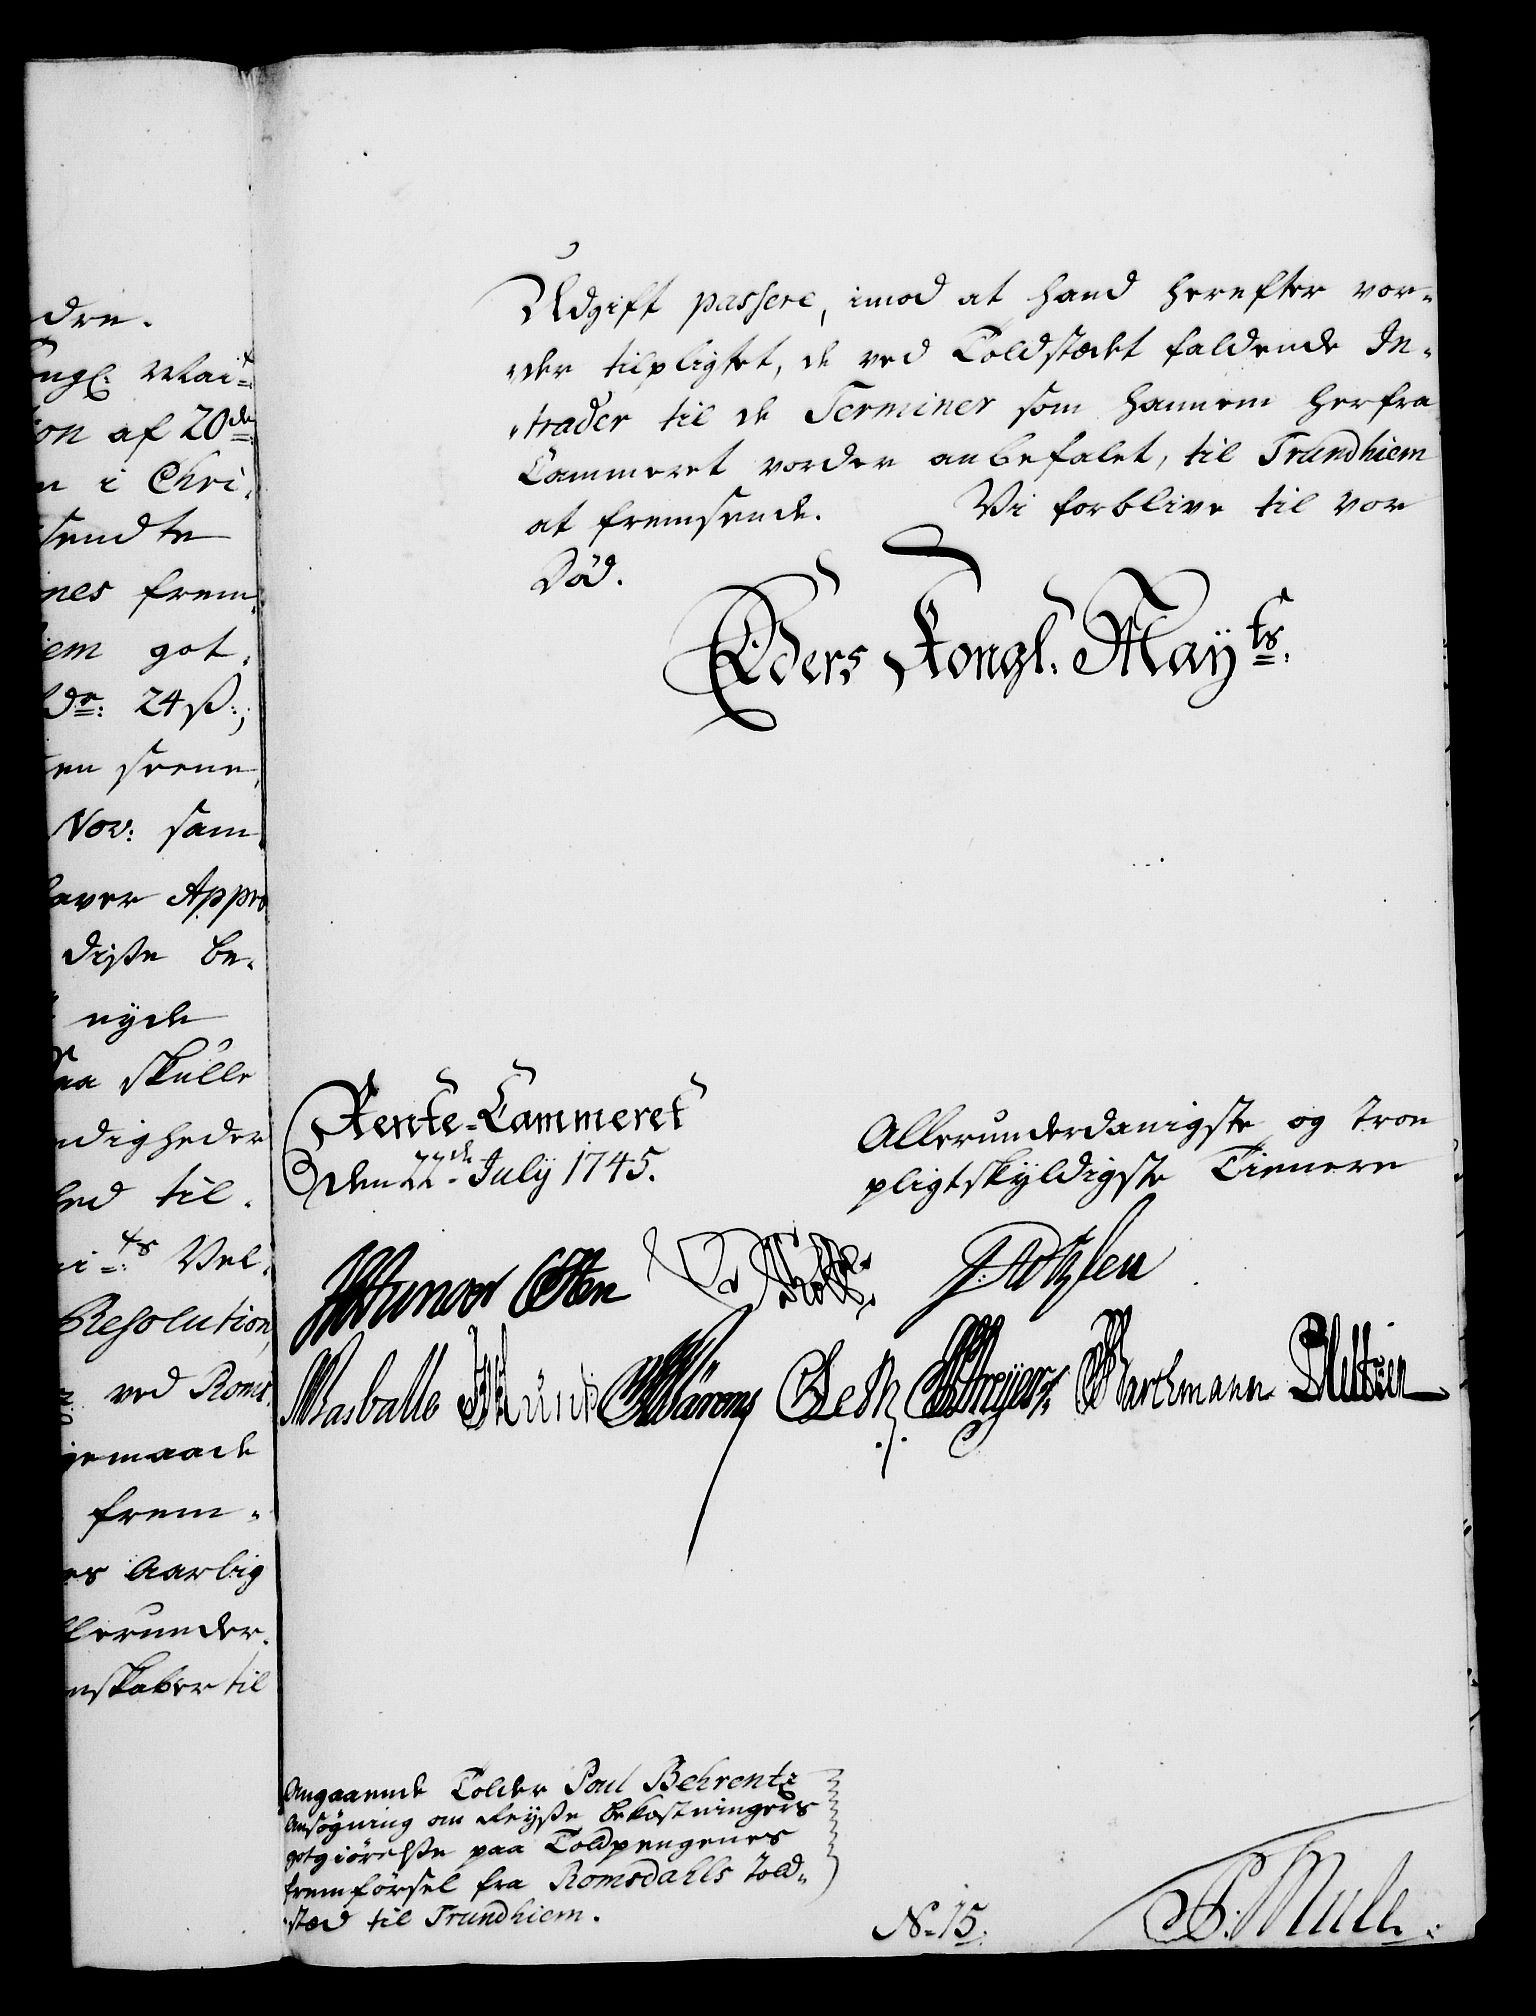 dre.
Kongl. Mai.t
ion af 20de
n i Chri-
sendte
nes frem-
iem got-
ldr: 24 ß:;
en seene,
Nov: sam
aver Appro
diße be-
nyde
aa skulle
ndigheder
hed til-
i:ts Vel-
Resolution,
ved Roms
gemaade
frem-
es Aarlig
llerunder-
nskaber til
Udgift passere, imod at hand herefter vor-
der tilpligtet, de ved Toldstædet faldende In-
trader til de Terminer som hannem herfra
Cammeret vorder anbefalet, til Trundhiem
at fremsende. Vi forblive til vor
Død.
Eders Kongl. Mayts.
Rente-Cammeret
den 22de July 1745.
Allerunderdanigste og troe
pligtskyldigste Tienere
Masballe Munk Wärens Barthmann
Angaaende Tolder Poul Behrentz
Ansøgning om Reyße bekostningers
gotgiørelße paa Toldpengenes
fremførsel fra Romsdahls Told-
stæd til Trundhiem.
No. 15.
P: Mull.